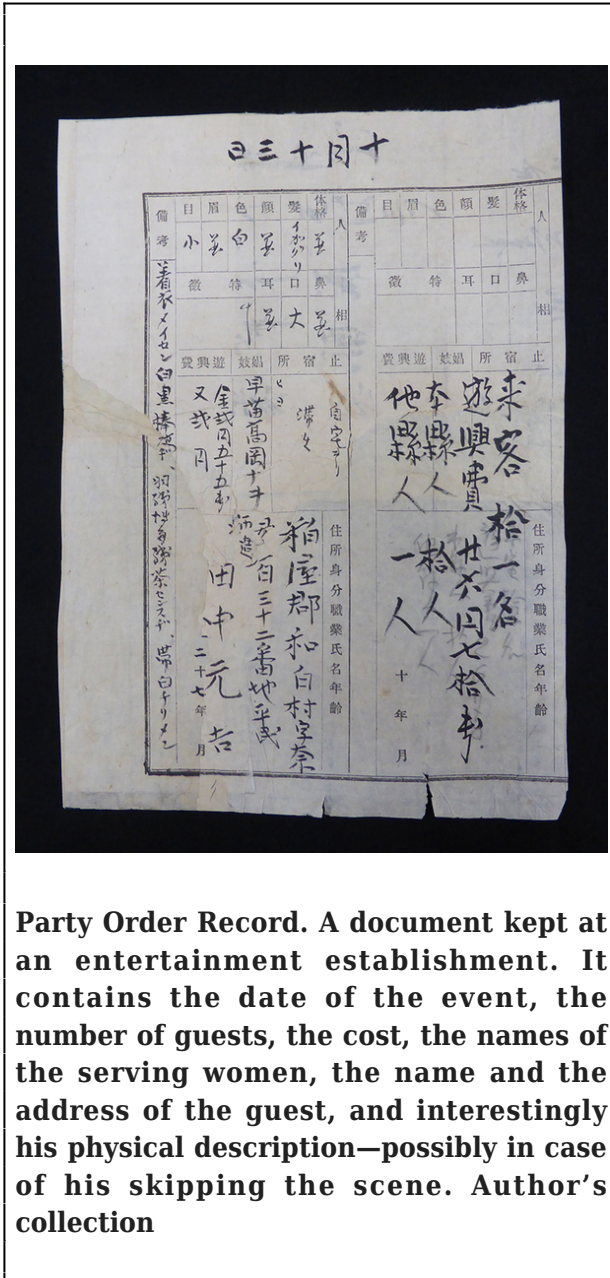 十月十三日
人相
体格
髪
顔
色
眉
目
鼻
口
耳
特徴
止宿所
娼妓
遊興費
住所身分職業氏名年齢
来客拾一名
遊興費廿六円七拾銭
本縣人拾人
他縣人一人
年月
備考
人相
体格 並
髪 イガグリ
顔 並
色 白
眉 並
目 小
鼻 並
口 大
耳 並
特徴 ナ
止宿所 自宅ヨリ
娼妓
早苗高岡ナヲ
遊興費
金弐円五十五銭
又弐円
住所身分職業氏名年齢
粕屋郡和白村字奈
百三十二番地平民
田中元吉
二十七年月
備考
着衣メイセン白黒棒
帯白チリメン
Party Order Record. A document kept at
an entertainment establishment. It
contains the date of the event, the
number of guests, the cost, the names of
the serving women, the name and the
address of the guest, and interestingly
his physical description—possibly in case
of his skipping the scene. Author’s
collection